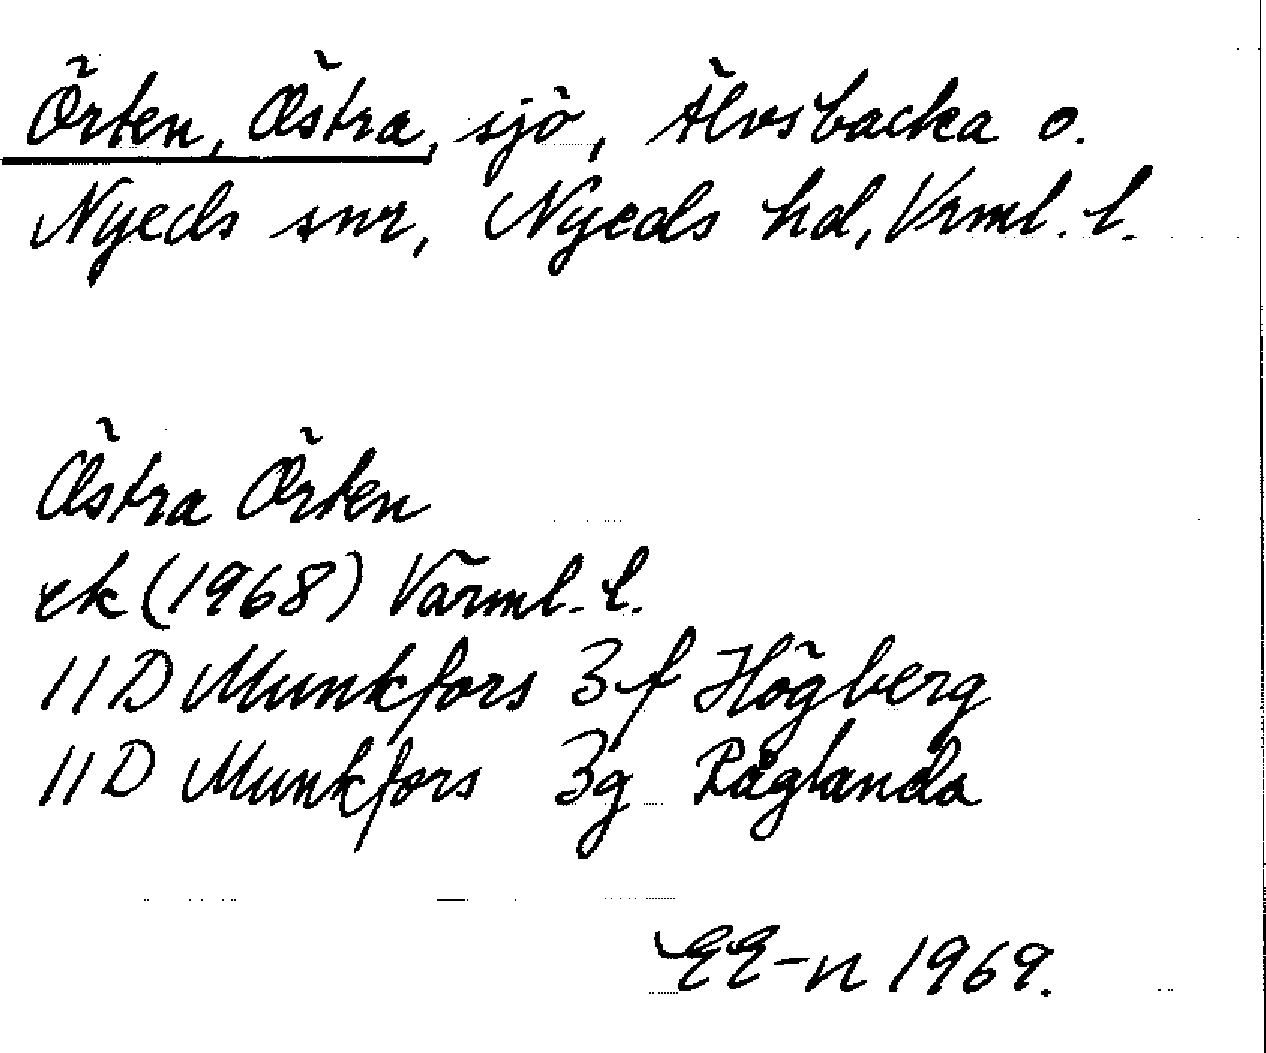 Örten, Östra, sjö, Älvsbacka o.
Nyeds snr, Nyeds hd, Vrml. l.
Östra Örten
ek (1968) Värml. l.
11 D Munkfors 3 f Högberg
11 D Munkfors 3g Råglanda
EE-n 1969.